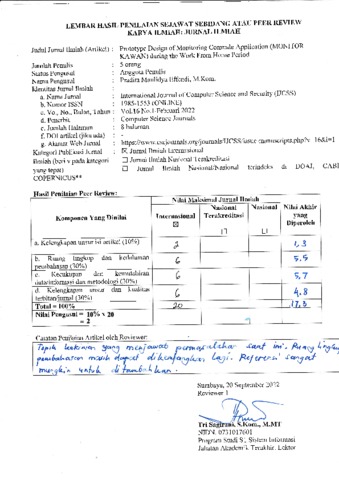 LEMBAR HASIL PENILAIAN SEJAWAT SEBIDANG ATAU PEER REVIEW
KARYA ILMIAH: JURNAL ILMIAH
Judul Jurnal Ilmiah (Artikel) : Prototype Design of Monitoring Comrade Application (MONITOR
KAWAN) during the Work From Home Period
Jumlah Penulis : 5 orang
Status Pengusul : Anggota Penulis
Nama Pengusul : Pradita Maulidya Effendi, M.Kom.
Identitas Jurnal Ilmiah :
a. Nama Jurnal : International Journal of Computer Science and Security (IJCSS)
b. Nomor ISSN : 1985-1553 (ONLINE)
c. Vo., No., Bulan, Tahun : Vol.16 No.1 Februari 2022
d. Penerbit : Computer Science Journals
e. Jumlah Halaman : 8 halaman
f. DOI artikel (jika ada) :
g. Alamat Web Jurnal : https://www.cscjournals.org/journals/IJCSS/issue-manuscripts.php?v=16&i=1
Kategori Publikasi Jurnal : ☒ Jurnal Ilmiah Internasional
Ilmiah (beri v pada kategori ☐ Jurnal Ilmiah Nasional Terakreditasi
yang tepat) ☐ Jurnal Ilmiah Nasional/Nasional terindeks di DOAJ, CABI
COPERNICUS**
Hasil Penilaian Peer Review:
Nilai Maksimal Jurnal Ilmiah
Komponen Yang Dinilai Internasional ☒ Nasional Terakreditasi Nasional Nilai Akhir yang Diperoleh
a. Kelengkapan unsur isi artikel (10%) 2 1,3
b. Ruang lingkup dan kedalaman pembahasan (30%) 6 5.5
c. Kecukupan dan kemutahiran data/informasi dan metodologi (30%) 6 5,7
d. Kelengkapan unsur dan kualitas terbitan/jurnal (30%) 6 4,8
Total = 100% 20 17,3
Nilai Pengusul = 10% x 20
= 2
Catatan Penilaian Artikel oleh Reviewer:
Topik kekinian yang menjawab permasalahan saat ini. Ruang lingkup
pembahasan masih dapat dikembangkan lagi. Referensi sangat
mungkin untuk ditambahkan.
Surabaya, 20 September 2022
Reviewer 1
Tri Sagirani, S.Kom., M.MT
NIDN. 0731017601
Program Studi S1 Sistem Informasi
Jabatan Akademik Terakhir: Lektor